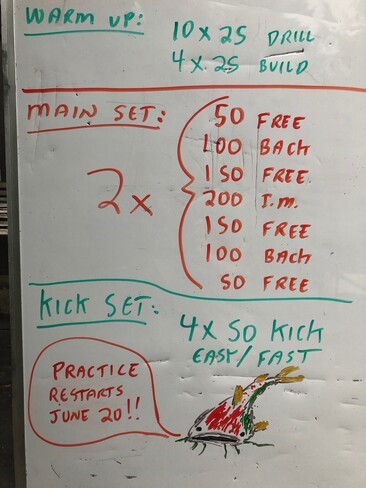 WARM UP:
10 x 25 DRILL
4 x 25 BUILD
MAIN SET:
2x
50 FREE
100 BACH
150 FREE
200 I.M.
150 FREE
100 BACH
50 FREE
KICK SET:
4 x 50 KICK
EASY/FAST
PRACTICE
RESTARTS
JUNE 20!!